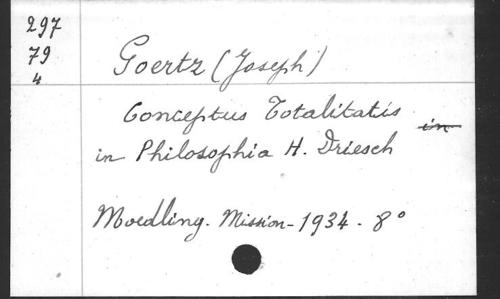 297
79
4
Goertz (Joseph)
Conceptus Totalitatis in
in Philosophia H. Driesch
Moedling. Mission - 1934 - 8°